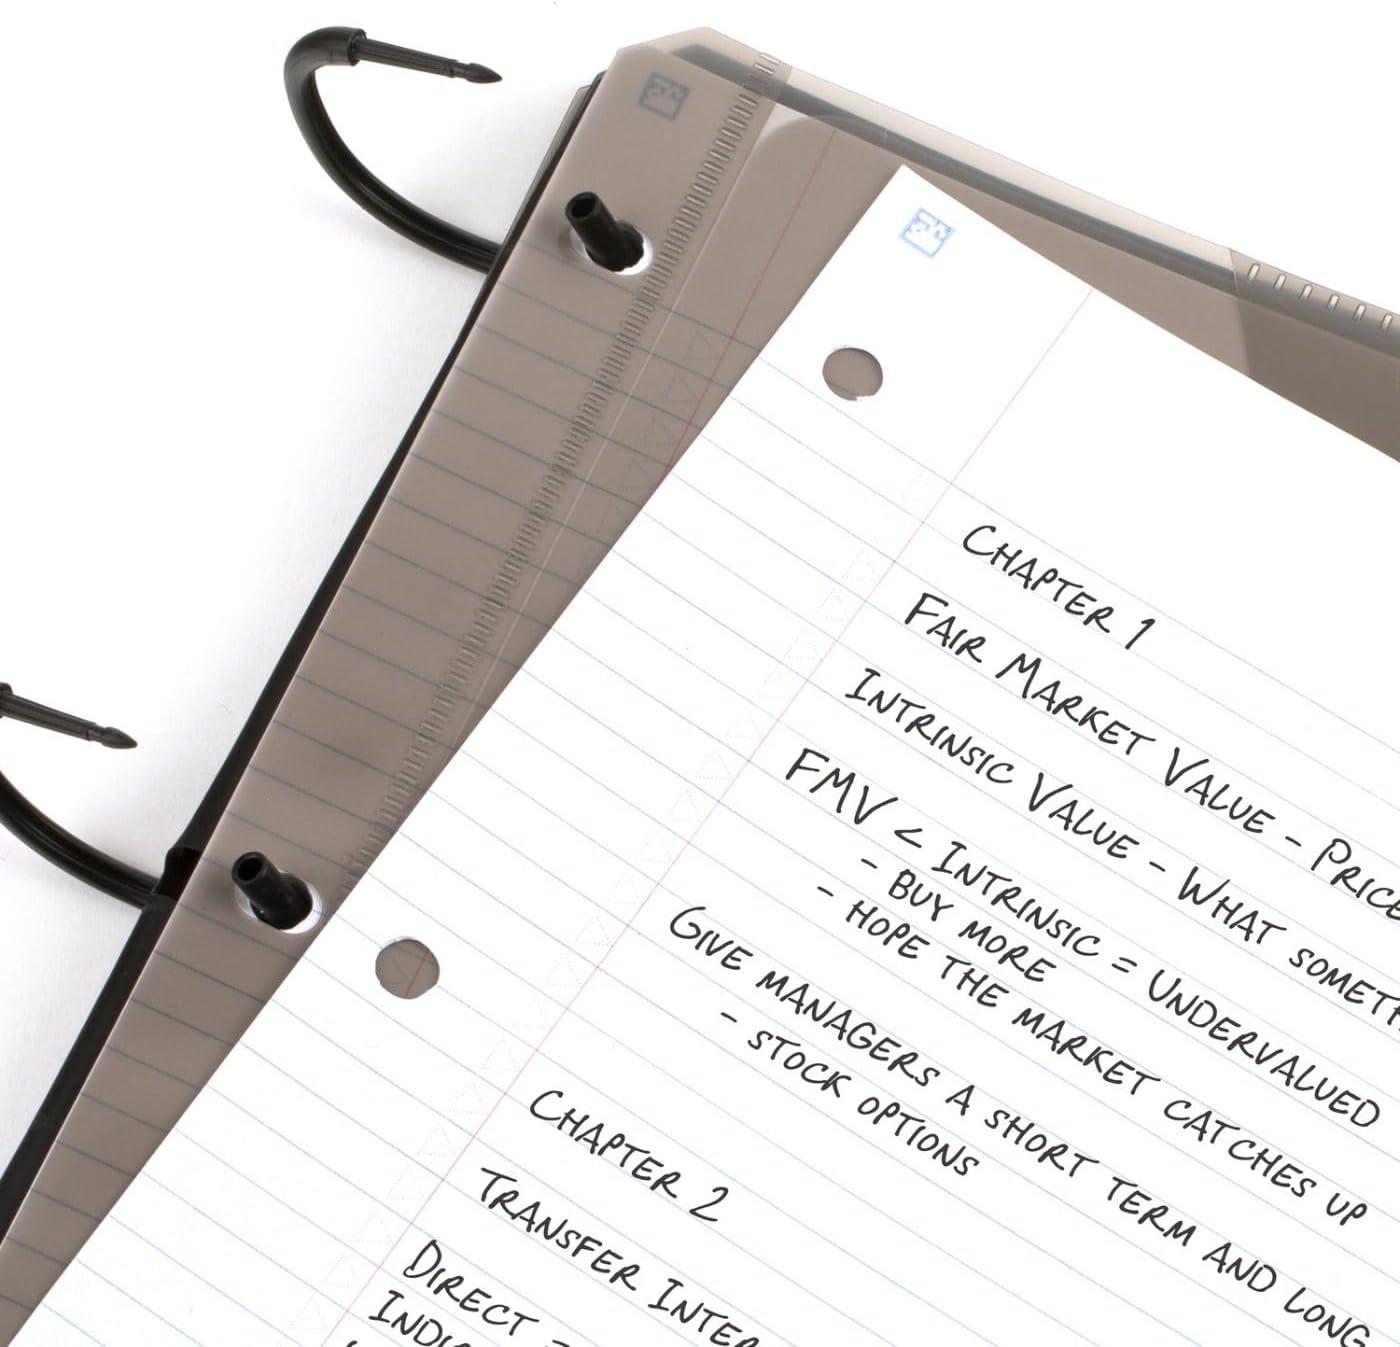 CHAPTER 1
FAIR MARKET VALUE - PRICE
INTRINSIC VALUE - WHAT
FMV < INTRINSIC = UNDERVALUED
- BUY MORE
- HOPE THE MARKET CATCHES UP
GIVE MANAGERS A SHORT TERM AND LONG
- STOCK OPTIONS
CHAPTER 2
TRANSFER
DIRECT =